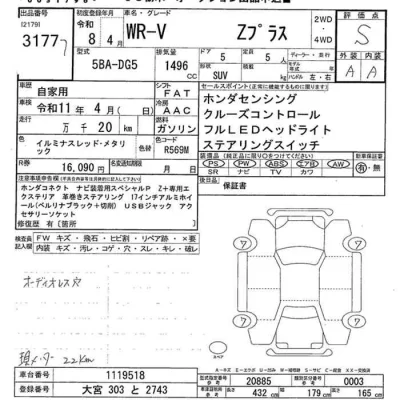 出品番号 初度登録年月 車名・グレード 2WD 4WD 評価点
[2179] 3177 令和 8年 4月 WR-V Zプラス S
型式 排気量 ドア 形状 定員 ディーラー・並行
5BA-DG5 1496 CC 5 SUV 5人 ハンドル 左・右 外 A 内 A
車歴 自家用 シフト FAT セールスポイント(正常に機能するものに限ります)
車検 令和11年 4月( 日) 冷房 AAC ホンダセンシング
走行 万 千 20 km 燃料 ガソリン クルーズコントロール
色 イルミナスレッド・メタリック カラーNo. R569M フルLEDヘッドライト
ステアリングスイッチ
R券 16,090円 名変期限
注意事項申告欄
PS PW ABS エアB AW 有・無
SR ナビ TV カワ
ホンダコネクト ナビ装着用スペシャルP Z+専用エ
クステリア 革巻きステアリング 17インチアルミホイ
ール(ベルリナブラック+切削) USBジャック アク
セサリーソケット
後日品 保証書
修復歴 有(箇所 )
検査員記入欄
FW キズ・飛石・ヒビ割・リペア跡・×要
内装 キズ・汚レ・コゲ・穴・スレ・キレ・破レ
オーディオレス穴
現メーター 22km
スペア
車台番号 1119518
登録番号 大宮 303 と 2743
型式指定番号 20885 類別区分番号 0003
長さ 432 cm 幅 179 cm 高さ 165 cm